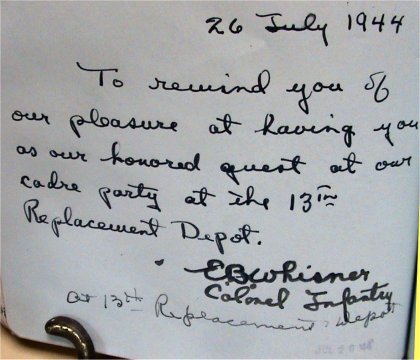 26 July 1944
To remind you of
our pleasure at having you
as our honored guest at our
cadre party at the 13TH
Replacement Depot.
E.B. Whisner
Colonel Infantry
at 13th Replacement Depot